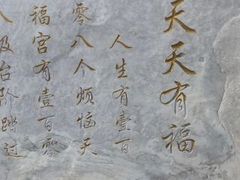 天天有福
人生有壹百
零八个烦恼天
福宫有壹百零
及台阶踏过